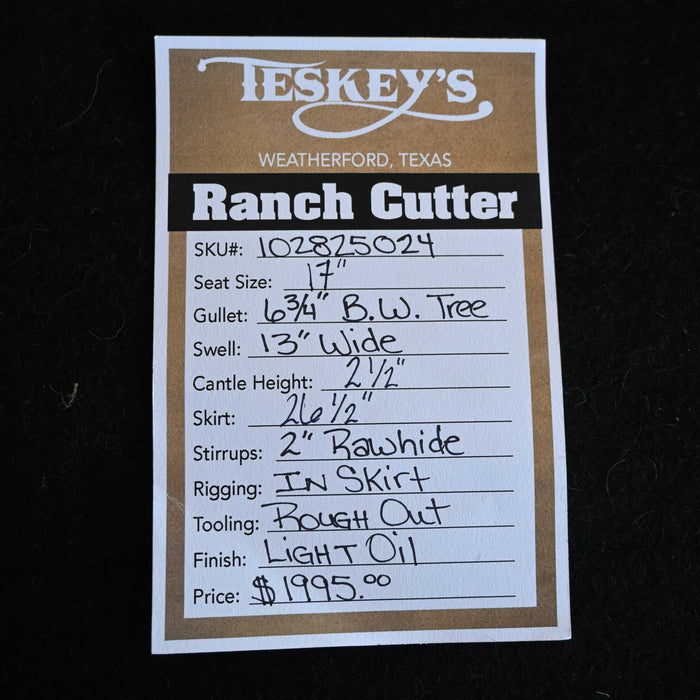 TESKEY'S
WEATHERFORD, TEXAS
Ranch Cutter
SKU#: 102825024
Seat Size: 17"
Gullet: 6 3/4" B.W. Tree
Swell: 13" Wide
Cantle Height: 2 1/2"
Skirt: 26 1/2"
Stirrups: 2" Rawhide
Rigging: IN SKirt
Tooling: ROUGH Out
Finish: LIGHT Oil
Price: $1995.00